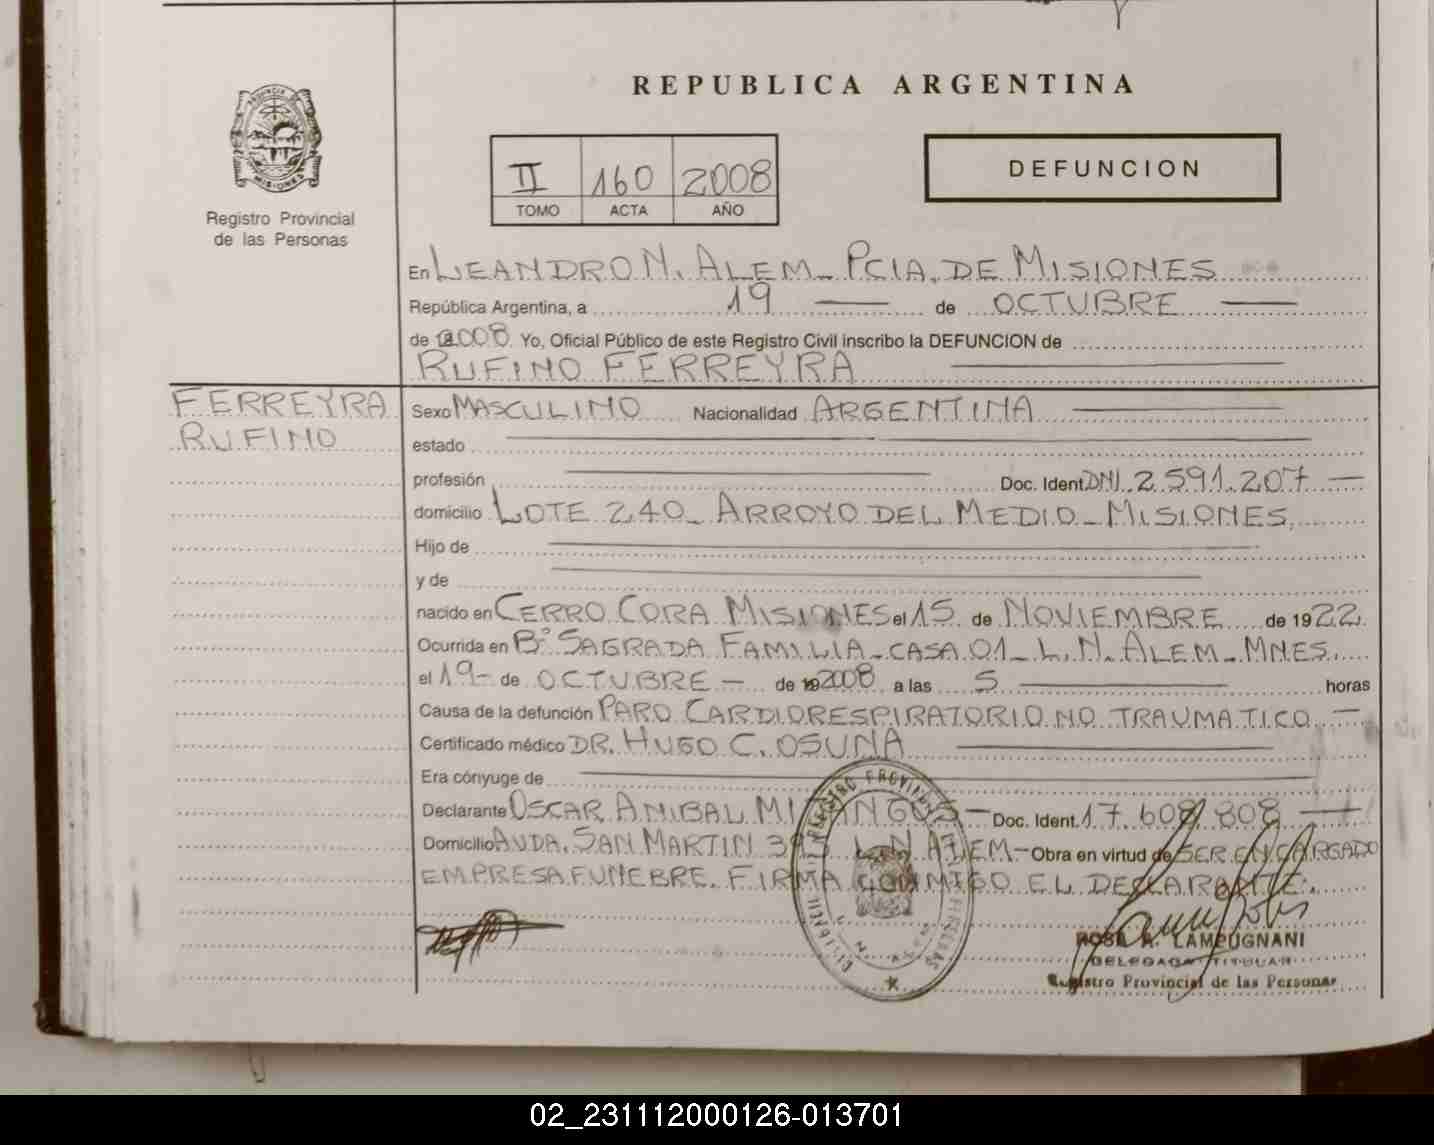 REPUBLICA ARGENTINA
PROVINCIA DE
MISIONES
Registro Provincial
de las Personas
II 160 2008
TOMO ACTA AÑO
DEFUNCION
En LEANDRO N. ALEM - PCIA. DE MISIONES
República Argentina, a 19 de OCTUBRE
de 2008 Yo, Oficial Público de este Registro Civil inscribo la DEFUNCION de
RUFINO FERREYRA
FERREYRA
RUFINO
Sexo MASCULINO Nacionalidad ARGENTINA
estado
profesión Doc. Ident. DNI. 2.591.207
domicilio LOTE 240 - ARROYO DEL MEDIO - MISIONES.
Hijo de
y de
nacido en CERRO CORA MISIONES el 15 de NOVIEMBRE de 1922.
Ocurrida en Bº SAGRADA FAMILIA - CASA 01 - L. N. ALEM - MNES.
el 19 - de OCTUBRE - de 2008 a las 5 horas
Causa de la defunción PARO CARDIORESPIRATORIO NO TRAUMATICO
Certificado médico DR. HUGO C. OSUNA
Era cónyuge de
Declarante OSCAR ANIBAL Doc. Ident. 17.608.808
Domicilio AVDA. SAN MARTIN L. N. ALEM - Obra en virtud de SER ENCARGADO
EMPRESA FUNEBRE. FIRMA CONMIGO EL DECLARANTE.
ROSA A. LAMPUGNANI
DELEGADA TITULAR
Registro Provincial de las Personas
02_231112000126-013701